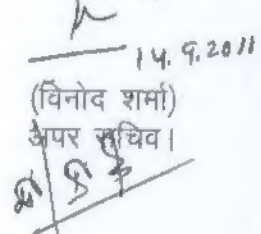 14.9.2011
(विनोद शर्मा)
अपर सचिव।